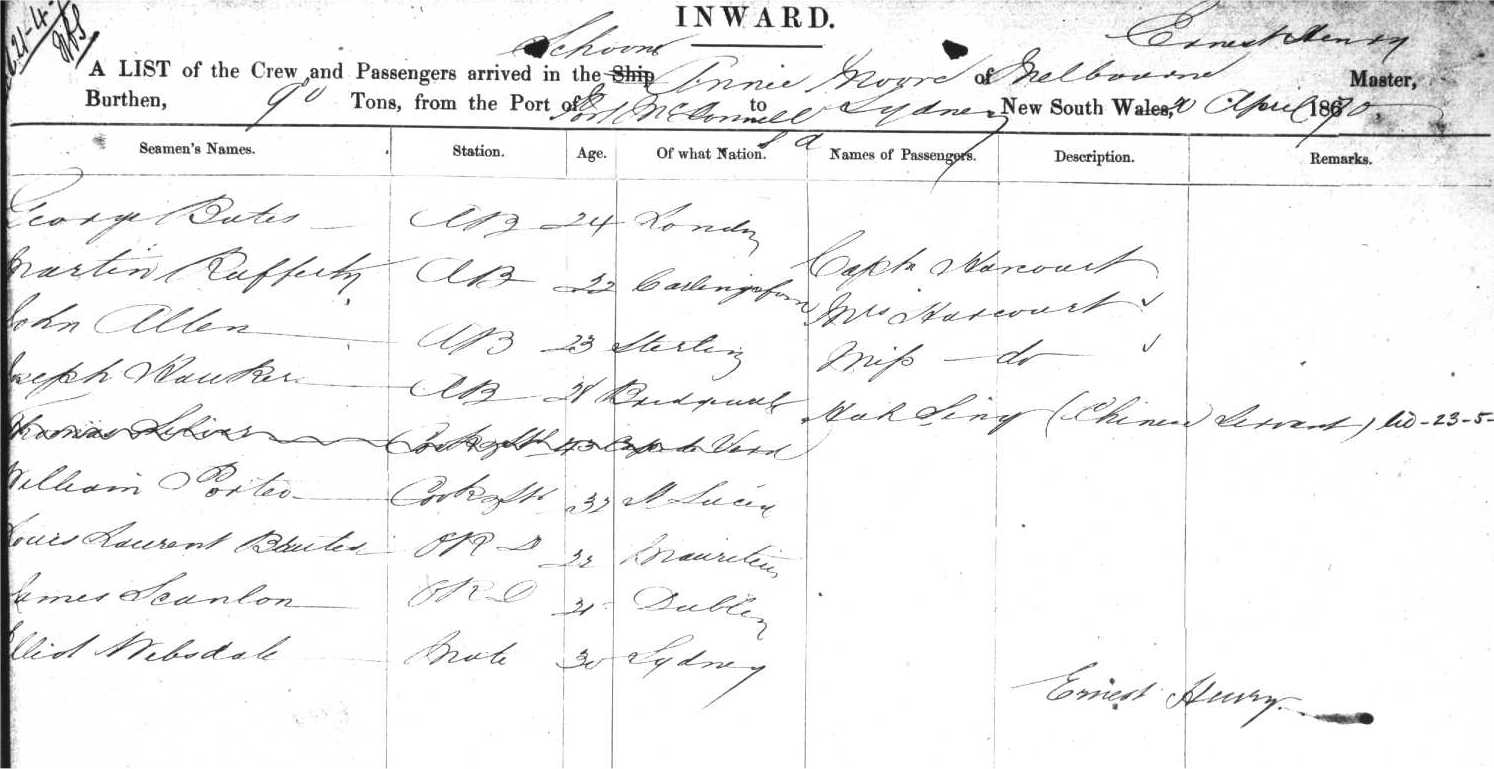 INWARD.
Schoonr Ernest Henry
A LIST of the Crew and Passengers arrived in the Ship Annie Moore of Melbourne Master,
Burthen, 90 Tons, from the Port of Port McDonnell S A to Sydney New South Wales, April 1870
Seamen's Names. Station. Age. Of what Nation. Names of Passengers. Description. Remarks.
George Bates AB 24 London
Martin Rafferty AB 22 Carlingford Captn Harcourt
John Allen AB 23 Sterling Mrs Harcourt
Joseph Hauker AB Miss do
Thomas Silver Cook & Std 43 Cape de Verd Hok Sing (Chinese Servant) 23-5-
William Porter Cook & Std 32 St Lucia
Louis Laurent ORD 22 Mauritius
James Scanlon ORD Dublin
Elliot Websdale Mate 30 Sydney
Ernest Henry